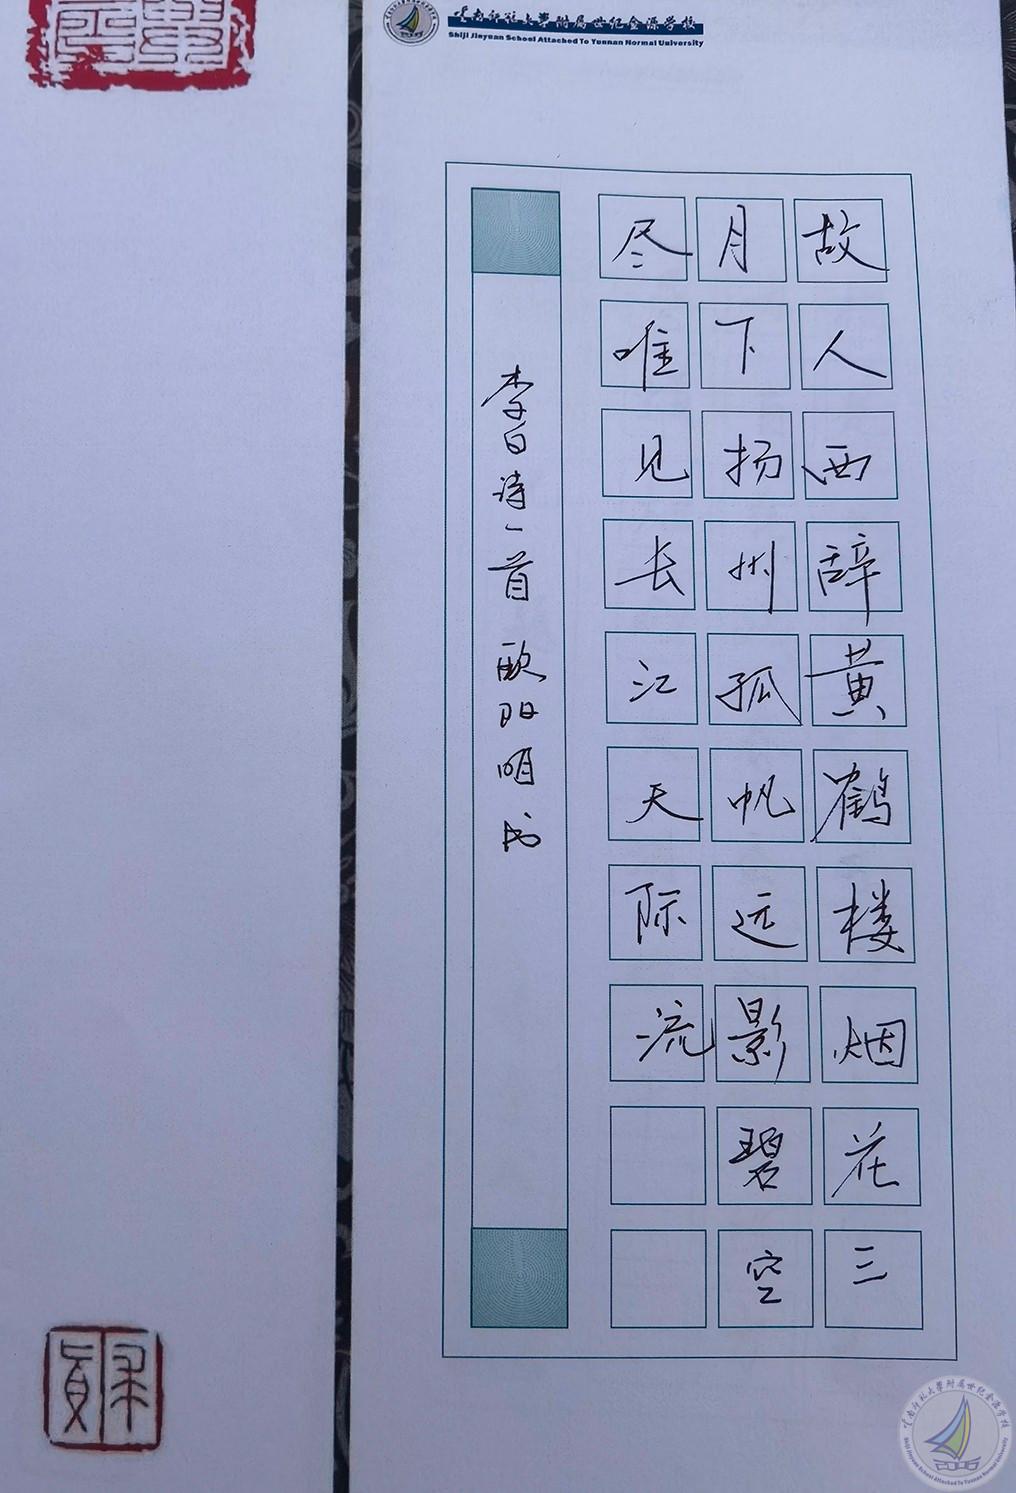 雲南師範大學附属世纪金源学校
Shiji Jinyuan School Attached To Yunnan Normal University
故人西辞黄鹤楼烟花三
月下扬州孤帆远影碧空
尽唯见长江天际流
李白诗一首 欧阳明书
雲南師範大學附属世纪金源学校
Shiji Jinyuan School Attached To Yunnan Normal University